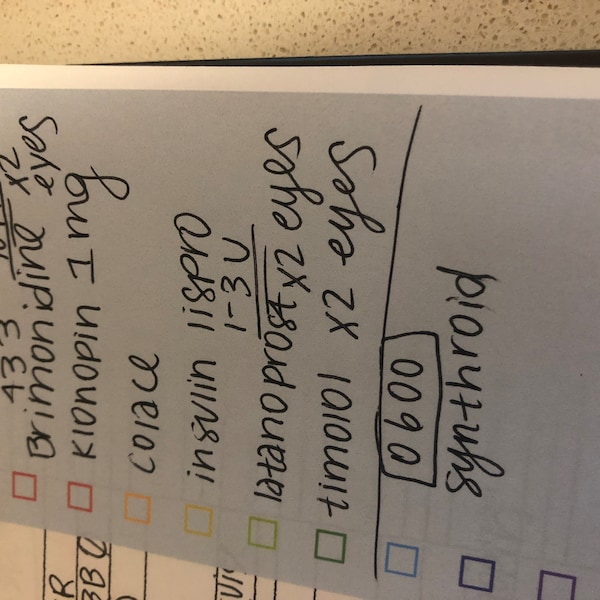 433
Brimonidine x2
eyes
Klonopin 1 mg
colace
insulin lispro
1-3 U
latanoprost x2 eyes
timolol x2 eyes
0600
synthroid